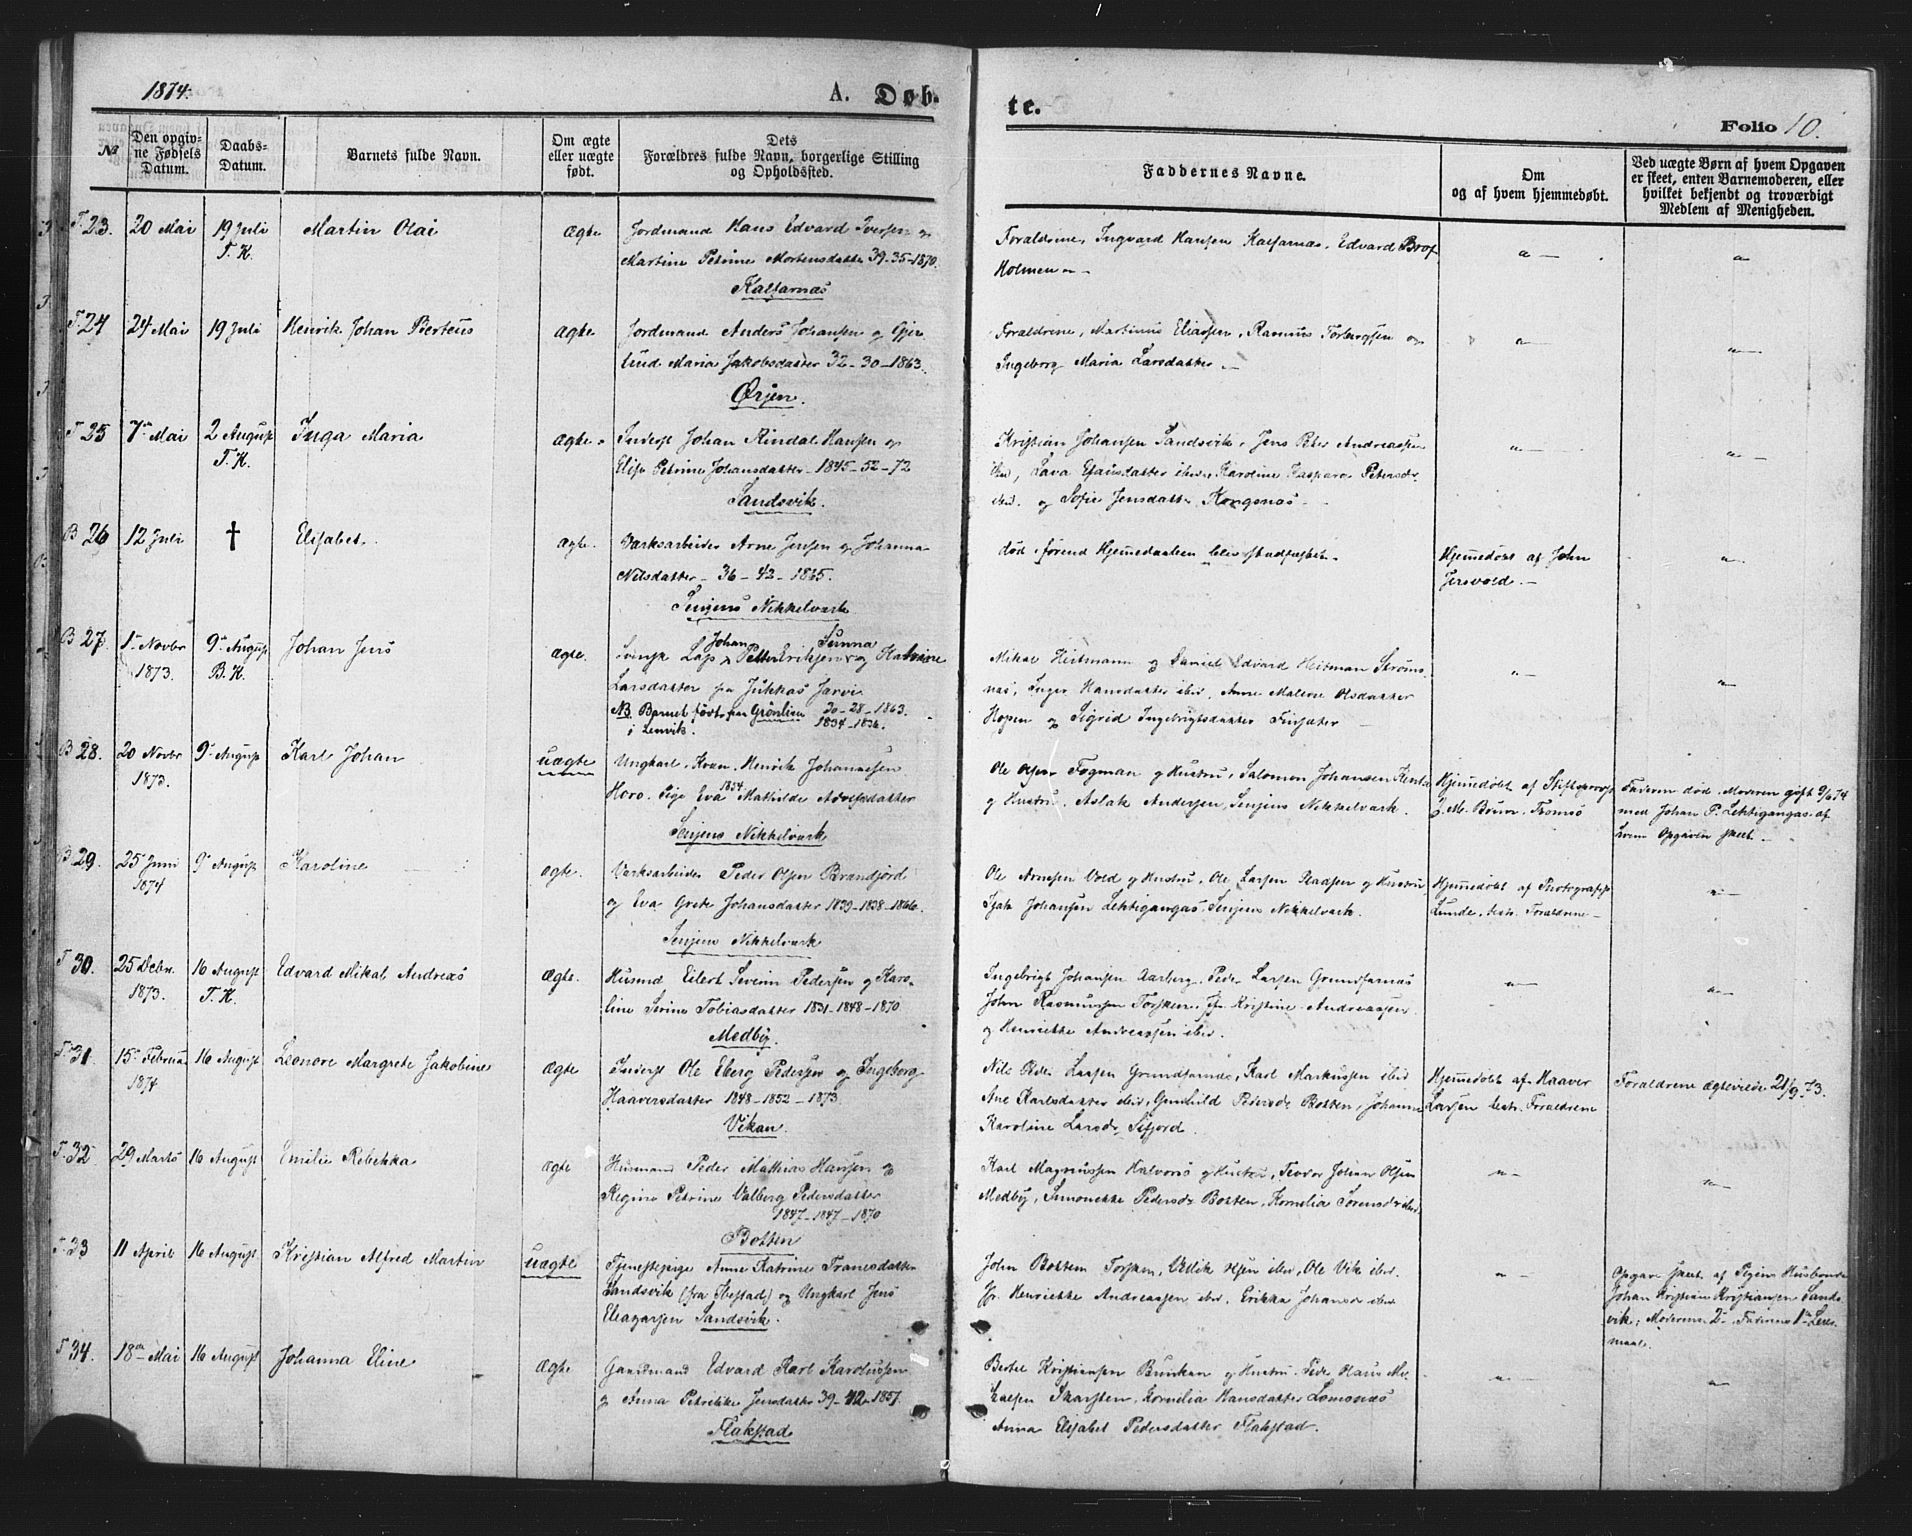 1874.
A. Døb-
te.
Folio 10.
No
Den opgiv-
ne Fødsels
Datum.
Daabs-
Datum.
Barnets fulde Navn.
Om ægte
eller uægte
født.
Dets
Forældres fulde Navn, borgerlige Stilling
og Opholdssted.
Faddernes Navne.
Om
og af hvem hjemmedøbt.
Ved uægte Børn af hvem Opgaven
er skeet, enten Barnemoderen, eller
hvilket bekjendt og troværdigt
Medlem af Menigheden.
T. 23. 20 Mai 19 Juli Martin Olai Ægte Jordmand Hans Edvard Iversen og
T. K. Martine Petrine Mortensdatter 39-35-1870.
Kalfarnæs
Forældrene, Ingvard Hansen Kalfarnæs, Edvard
Holmen
T. 24 24 Mai 19 Juli Henrik Johan Berteus ægte Jordmand Anders Johansen og Gjer
tud Maria Jakobsdatter 32-30-1863.
Ørjen.
Forældrene, Martinus Eliassen, Rasmus Torbergsen og
Ingeborg Maria Larsdatter.
T. 25 7de Mai 2 August Inga Maria Ægte Inderst Johan Rindal Hansen og
T. K. Elise Petrine Johansdatter 1845-52-72
Sandsvik.
Kristian Johansen Sandsvik, Jens Peter Andreassen
ibid, Lava Esaiasdatter ibid, Karoline Kaspara Petersdr
ibid. og Sofie Jensdatter Kongsnæs
B 26 12 Juli † Elisabet. ægte. Værksarbeider Arne Jensen og Johanna
Nilsdatter 36-42-1865.
Senjens Nikkelværk
død førend Hjemmedaaben blev stadfæstet
Hjemmedøbt af John
Jersvold.
B 27. 1ste Novbr 9de August Johan Jens ægte. Svensk Lap Johan Petter Eriksen og Sunna Katrine
1873. B. K. Larsdatter fra Jukkas Jarvi
NB Barnet født paa Grönlien 30-28-1863.
i Lenvik. 1834-1836.
Mikal Heitmann og Daniel Edvard Heitman Strøms
næs, Inger Hansdatter ibid, Anne Malene Olsdatter
Hopen og Sigrid Ingebrigtsdatter Finsæter
B 28. 20 Novbr 9de August Karl Johan uægte Ungkarl, Kvæn Henrik Johannesen
1873. Horo. Pige Eva Mathilde Adolfsdatter
1854
Senjens Nikkelværk
Ole Olsen Fogman og Hustru, Salomon Johansen
og Hustru, Aslak Andersen, Senjens Nikkelværk.
Hjemmedøbt af Stiftsprovst
Bruun Tromsö
Faderen död. Moderen gift 9/6 74
med Johan P. Lehtigangas af
hvem Opgaven skeet.
B 29. 25de Juni 9de August Karoline ægte. Værksarbeider Peder Olsen Brandfjord
1874 og Eva Grete Johansdatter 1839-1838-1866.
Senjens Nikkelværk
Ole Arnesen Vold og Hustru, Ole Larsen Plassen og Hustru
Isak Johansen Lehtigangas, Senjens Nikkelværk.
Hjemmedøbt af Photograph
Lunde, test. Forældrene
T. 30. 25 Decbr. 16 August Edvard Mikal Andreas Ægte. Husmd Eilert Severin Pedersen og Karo-
1873. T. K. line Serine Tobiasdatter 1831-1848-1870
Medby.
Ingebrigt Johansen Aarberg, Peder Larsen Grundfarnæs
John Rasmussen Torsken, Jfr Kristine Andreassen
og Henriette Andreassen ibid.
T. 31. 15de Februar 16 August Leonore Margrete Jakobine Ægte Inderst Ole Eberg Pedersen og Ingeborg
1874 Haaversdatter 1848-1852-1873.
Vikan.
Nils Peder Larsen Grundfarnæs, Karl Markussen ibid
Ane Karlsdatter ibid, Gunhild Pedersdr Botten, Johanne
Karoline Larsdr Sifjord.
Hjemmedøbt af Haaver
Larsen test. Forældrene
Forældrene ægteviede 21/9. 73.
T. 32 29 Marts 16 August Emilie Rebekka Ægte Husmand Peder Mathias Hansen og
Regine Petrine Valberg Pedersdatter
1847-1847-1870
Botten
Karl Magnussen Halvors og Hustru, Teodor Johan Olsen
Medby, Simonekke Pedersdr Botten, Kornelia Sørensdr ibid
T. 33 11 April 16 August Kristian Alfred Martin uægte Tjenestepige Anne Katrine Transdatter
Sandsvik (fra Ibestad) og Ungkarl Jens
Eleazarsen Sandsvik.
John Botten Torsken, Vedik Olsen ibid, Ole Vik ibid.
Jfr. Henriette Andreassen ibid. Erikka Johansdr ibid
Opgave skeet af Pigens Husbonde
Johan Kristian Kristiansen Sands
vik, Moderens 2de Faderens 1ste Leier
maal.
T. 34. 18de Mai 16 August Johanna Eline Ægte Gaardmand Edvard Karl Karolussen
og Anna Petrikke Jensdatter 39-42-1857.
Flakstad
Bertel Kristiansen Brunkan og Hustru, Peder Klaus
Larsen Skarsten, Kornelia Hansdatter Lomonæs
Anna Elisabet Pedersdatter Flakstad.